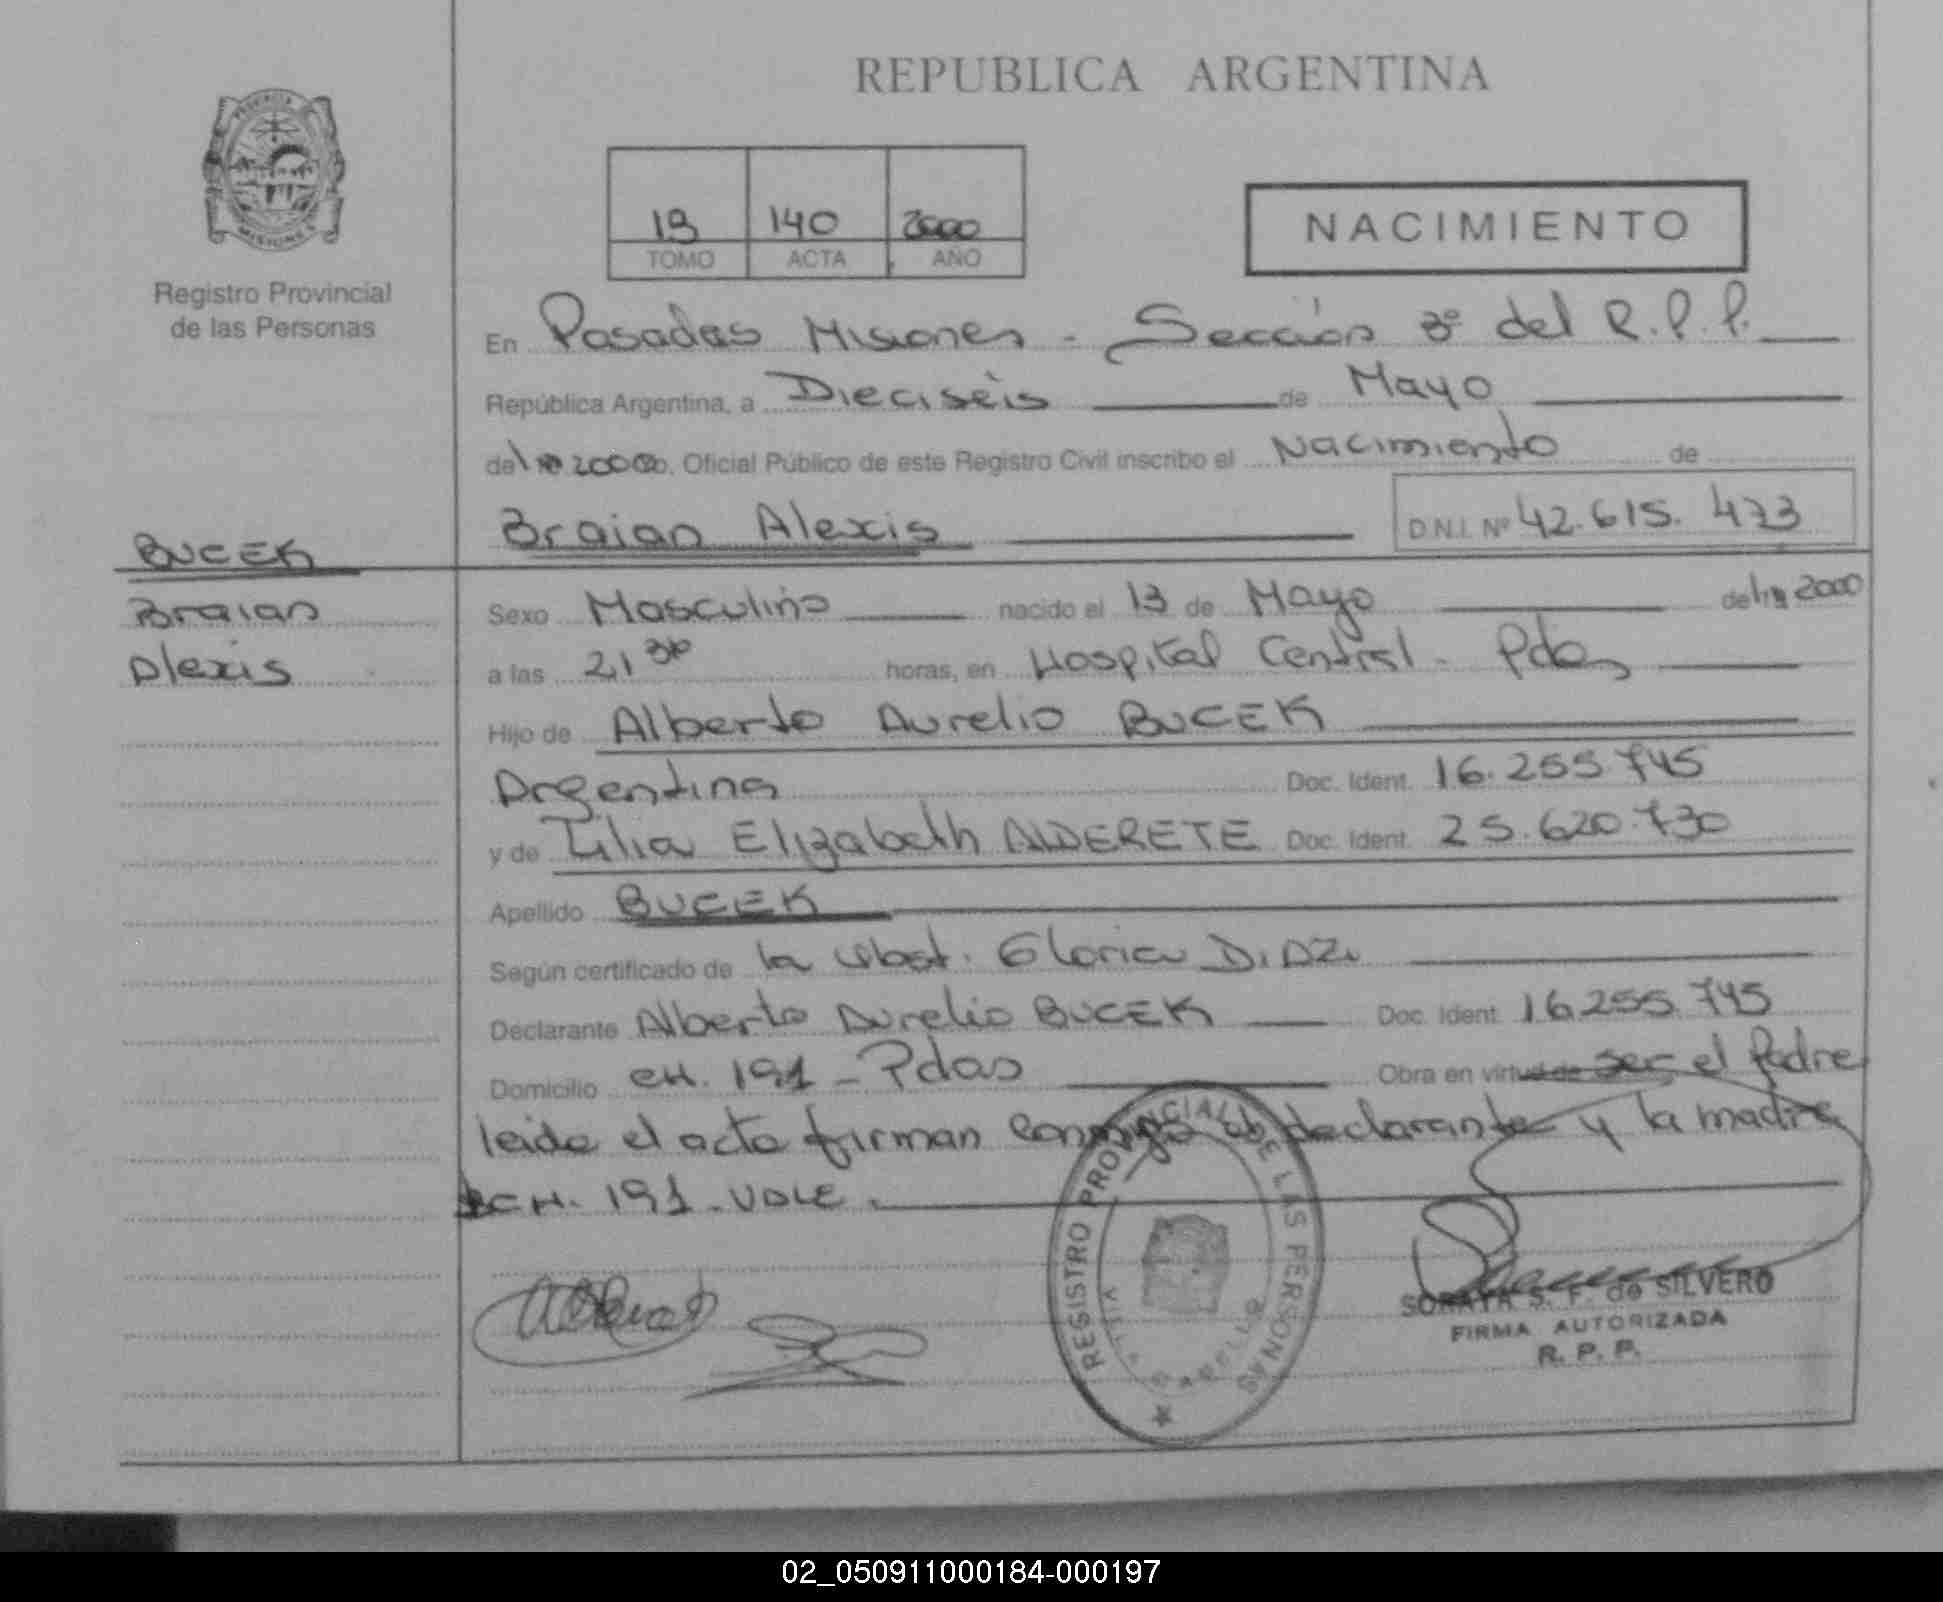 REPUBLICA ARGENTINA
PROVINCIA
MISIONES
Registro Provincial
de las Personas
19 140 2000
TOMO ACTA AÑO
NACIMIENTO
En Posadas Misiones - Sección 3º del R.P.P.
República Argentina, a Dieciséis de Mayo
del 2000, Oficial Público de este Registro Civil inscribo el Nacimiento de
Braian Alexis D.N.I. Nº 42.615.473
BUCEK
Braian
Alexis
Sexo Masculino nacido el 13 de Mayo del 2000
a las 21 30 horas, en Hospital Central - Pdas
Hijo de Alberto Aurelio BUCEK
Argentina Doc. Ident. 16.255.745
y de Lilia Elizabeth ALDERETE Doc. Ident. 25.620.730
Apellido BUCEK
Según certificado de la Obst. Gloria DIAZ
Declarante Alberto Aurelio BUCEK Doc. Ident. 16.255.745
Domicilio CH. 191 - Pdas Obra en virtud de ser el Padre
leida el acta firman conmigo el declarante y la madre
CH. 191 - VALE.
REGISTRO PROVINCIAL DE LAS PERSONAS
SORAYA S. F. de SILVERO
FIRMA AUTORIZADA
R. P. P.
02_050911000184-000197